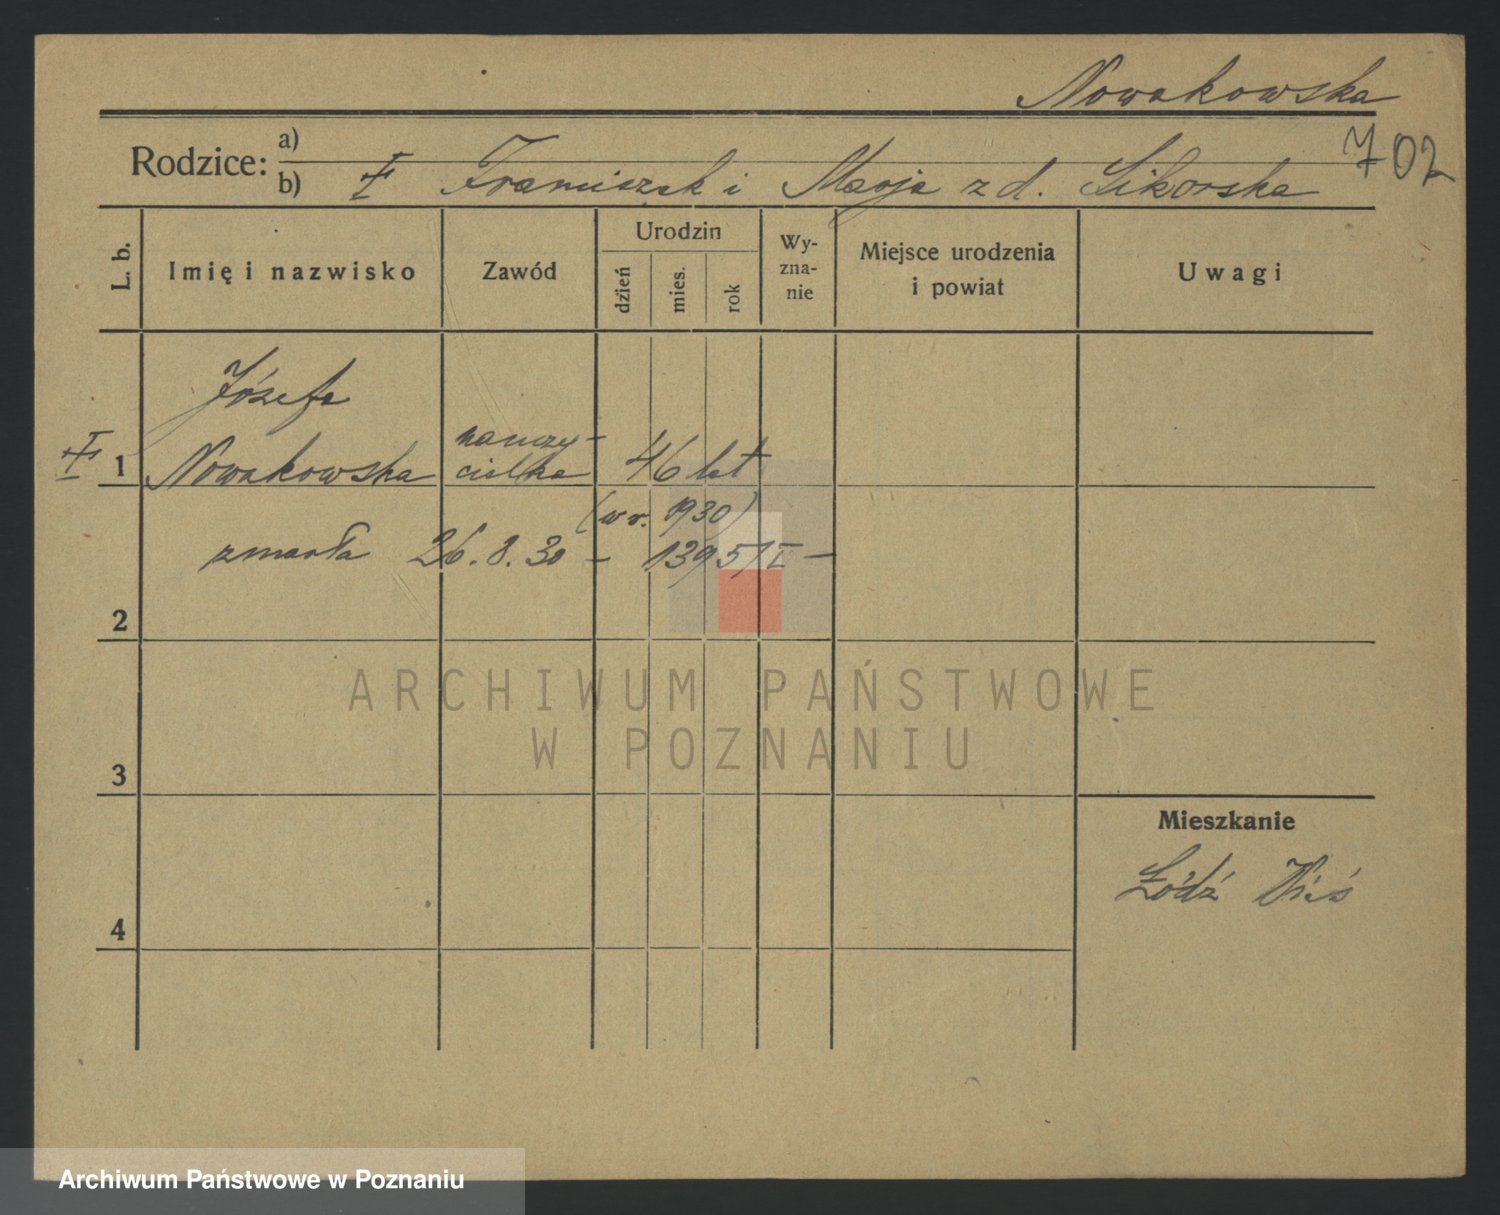 Nowakowska
702
Rodzice: a)
b) Franciszek i Marja z d. Sikorska
L. b.
Imię i nazwisko
Zawód
Urodzin
dzień
mies.
rok
Wy-
zna-
nie
Miejsce urodzenia
i powiat
Uwagi
Józefa
1 Nowakowska nauczy-
cielka 46 lat
(w r. 1930)
zmarła 26.8.30 – 1395/I –
2
3
4
Mieszkanie
Łódź
ARCHIWUM PAŃSTWOWE
W POZNANIU
Archiwum Państwowe w Poznaniu